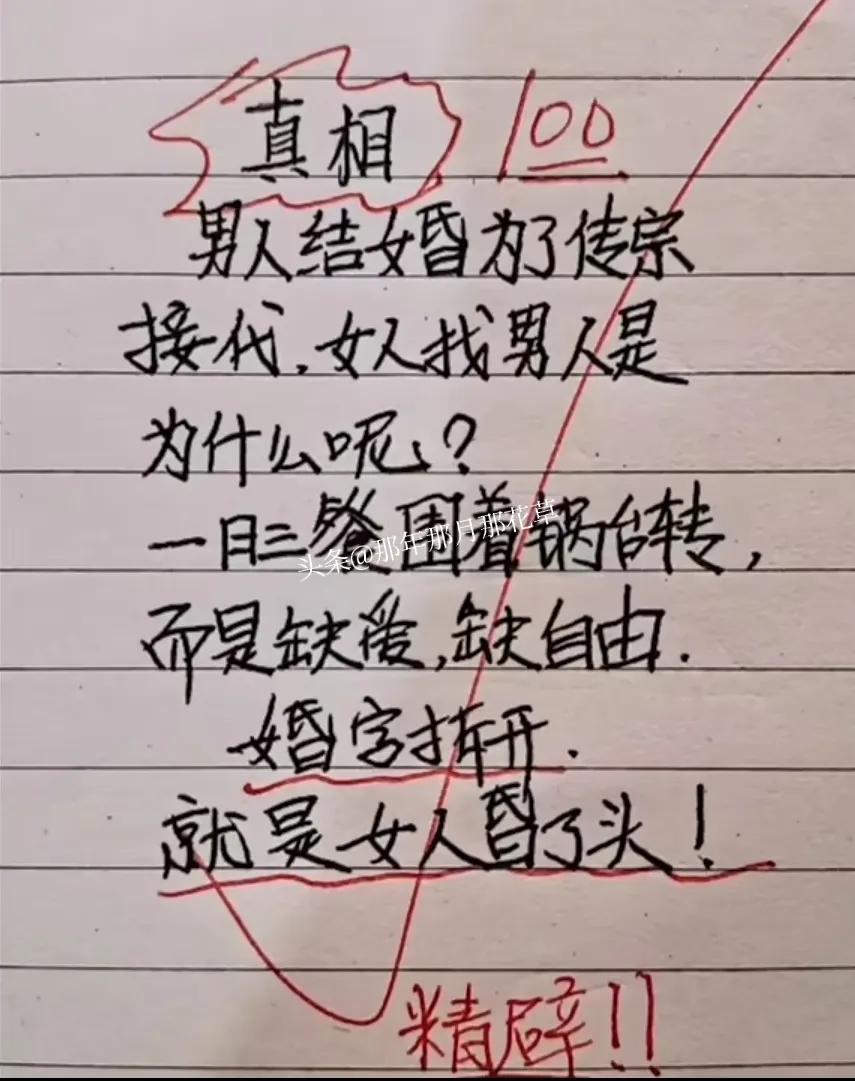 真相 100
男人结婚为了传宗
接代,女人找男人是
为什么呢?
一日三餐围着锅台转,
头条@那年那月那花草
而是缺爱,缺自由.
婚字拆开.
就是女人昏了头!
精辟!!